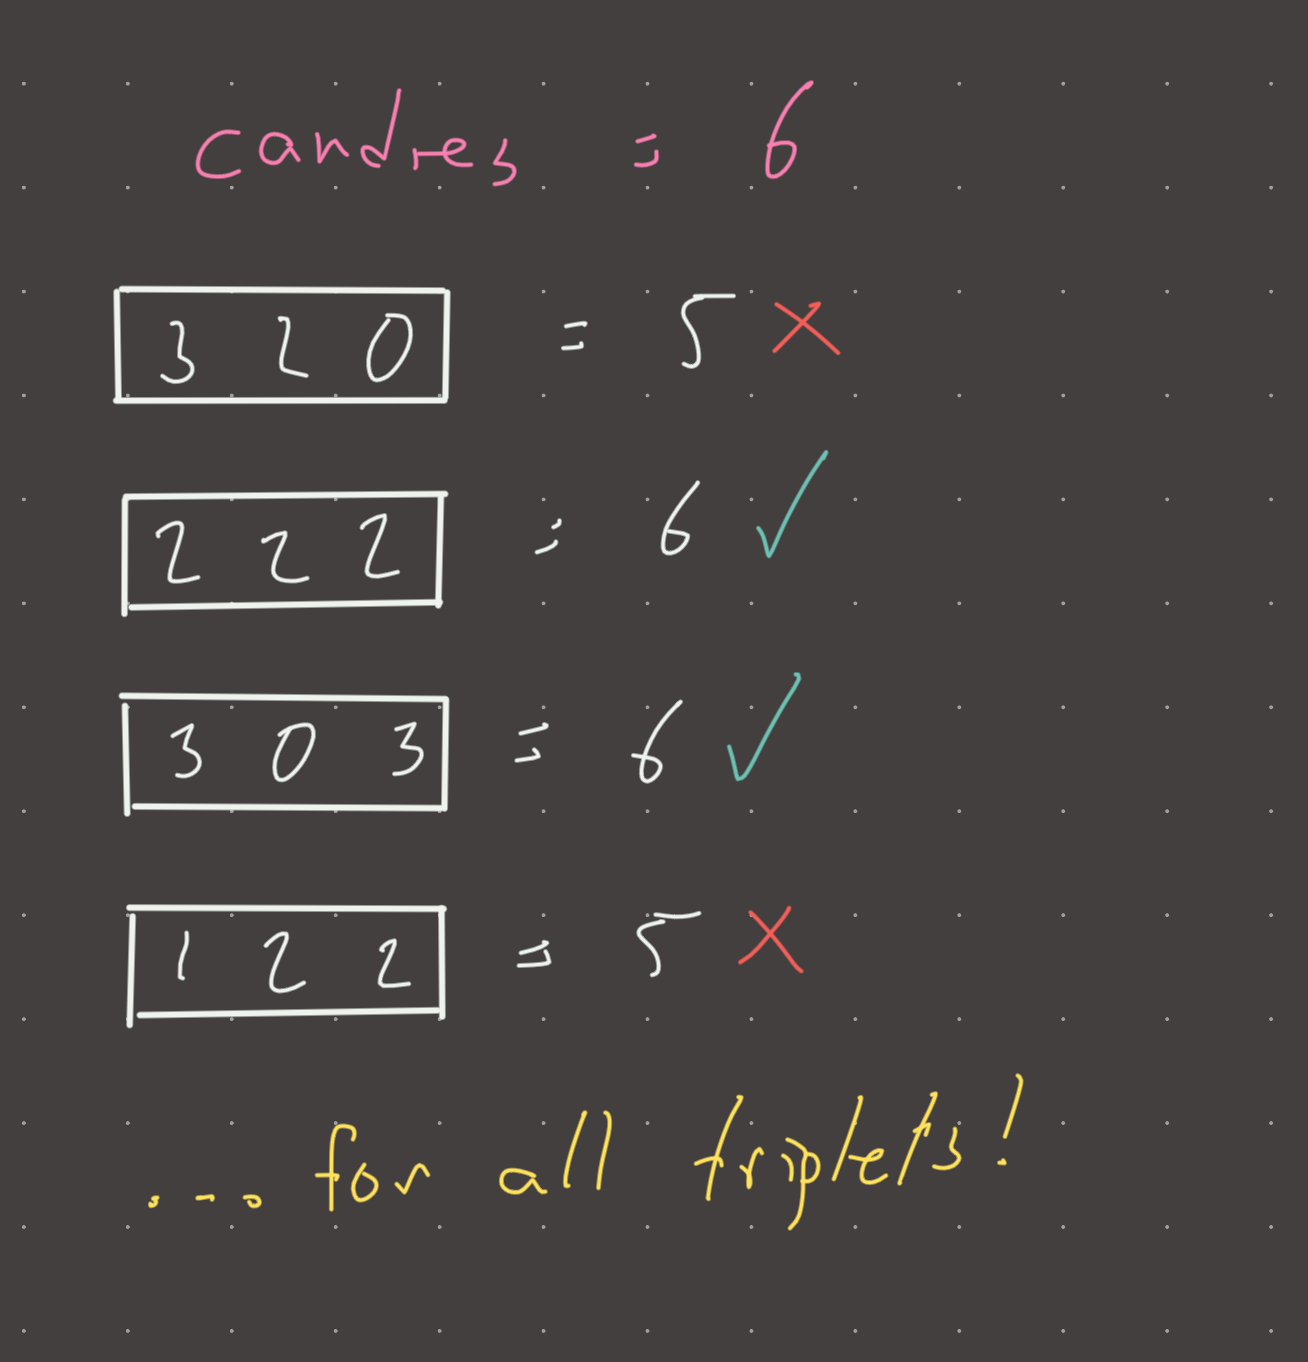 candies = 6
3 2 0 = 5 ✗
2 2 2 = 6 ✓
3 0 3 = 6 ✓
1 2 2 = 5 ✗
... for all triplets!